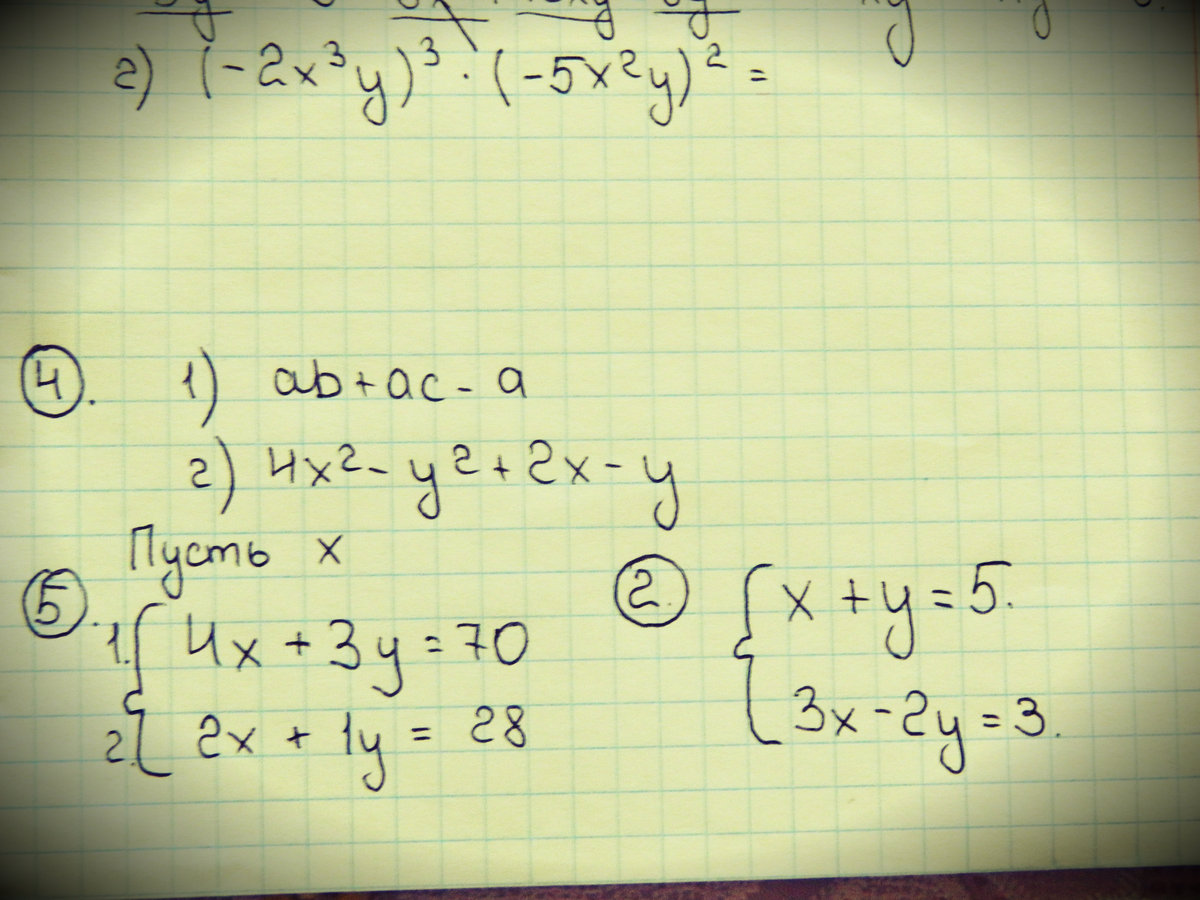 2) (-2x³y)³ · (-5x²y)² =
4. 1) ab + ac - a
2) 4x² - y² + 2x - y
Пусть x
5. 1. { 4x + 3y = 70
2. { 2x + 1y = 28
2. { x + y = 5.
3x - 2y = 3.